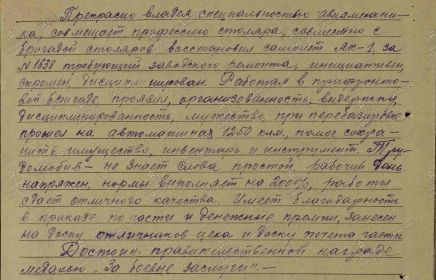 Прекрасно владея специальностью авиамехани-
ка, совмещает профессию столяра, совместно с
бригадой столяров восстановил самолет Як-1 за
№ 1638 требующий заводского ремонта, инициативен,
скромен, дисциплинирован. Работая в прифронто-
вой бригаде, проявил, организованность, выдержку,
дисциплинированность, мужество, при перебазировке
прошел на автомашинах 1250 клм, помог сохра-
нить имущество, инвентарь и инструмент. Тру-
долюбив - не знает слова простой, рабочий день
напряжен, нормы выполняет на 200%, работы
сдает отличного качества. Имеет благодарность
в приказе по части и денежные премии, занесен
на доску отличников цеха и доску почета части
Достоин правительственной награде
медалью "За боевые заслуги". -